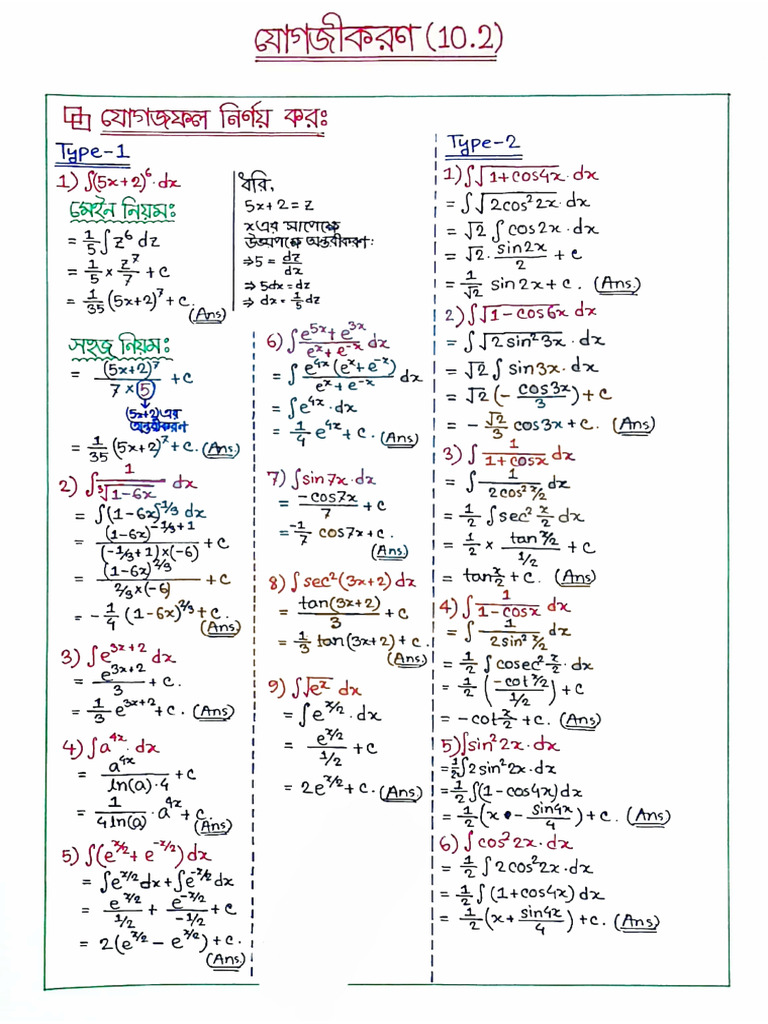 যোগজীকরণ (10.2)
যোগজফল নির্ণয় করঃ
Type-1
1) ∫(5x+2)⁶·dx
মেইন নিয়মঃ
= 1/5 ∫z⁶ dz
= 1/5 × z⁷/7 + c
= 1/35 (5x+2)⁷ + c. (Ans)
ধরি,
5x+2 = z
x এর সাপেক্ষে
উভয়পক্ষে অন্তরীকরণ:
⇒ 5 = dz/dx
⇒ 5dx = dz
⇒ dx = 1/5 dz
সহজ নিয়মঃ
= (5x+2)⁷/(7×5) + c
(5x+2) এর
অন্তরীকরণ
= 1/35 (5x+2)⁷ + c. (Ans)
2) ∫ 1/∛(1-6x) dx
= ∫(1-6x)^(-1/3) dx
= (1-6x)^(-1/3+1)/((-1/3+1)×(-6)) + c
= (1-6x)^(2/3)/(2/3×(-6)) + c
= -1/4 (1-6x)^(2/3) + c. (Ans)
3) ∫e^(3x+2) dx
= e^(3x+2)/3 + c.
= 1/3 e^(3x+2) + c. (Ans)
4) ∫a^(4x)·dx
= a^(4x)/(ln(a)·4) + c
= 1/(4ln(a)) · a^(4x) + c. (Ans)
5) ∫(e^(x/2) + e^(-x/2)) dx
= ∫e^(x/2) dx + ∫e^(-x/2) dx
= e^(x/2)/(1/2) + e^(-x/2)/(-1/2) + c
= 2(e^(x/2) - e^(x/2)) + c. (Ans.)
6) ∫ (e^(5x) + e^(3x))/(e^x + e^(-x)) dx
= ∫ e^(4x)(e^x + e^(-x))/(e^x + e^(-x)) dx
= ∫e^(4x)·dx
= 1/4 e^(4x) + c. (Ans)
7) ∫sin7x·dx
= -cos7x/7 + c
= -1/7 cos7x + c. (Ans)
8) ∫sec²(3x+2) dx
= tan(3x+2)/3 + c
= 1/3 tan(3x+2) + c. (Ans)
9) ∫√(e^x) dx
= ∫e^(x/2)·dx
= e^(x/2)/(1/2) + c
= 2e^(x/2) + c. (Ans)
Type-2
1) ∫√(1+cos4x)·dx
= ∫√(2cos²2x)·dx
= √2 ∫cos2x·dx
= √2·sin2x/2 + c
= 1/√2 sin2x + c. (Ans)
2) ∫√(1-cos6x) dx
= ∫√(2sin²3x)·dx
= √2 ∫sin3x·dx
= √2(-cos3x/3) + c
= -√2/3 cos3x + c. (Ans)
3) ∫ 1/(1+cosx) dx
= ∫ 1/(2cos² x/2) dx
= 1/2 ∫sec² x/2 dx
= 1/2 × (tan x/2)/(1/2) + c
= tan x/2 + c. (Ans)
4) ∫ 1/(1-cosx) dx
= ∫ 1/(2sin² x/2) dx
= 1/2 ∫cosec² x/2·dx
= 1/2 ((-cot x/2)/(1/2)) + c
= -cot x/2 + c. (Ans)
5) ∫sin²2x·dx
= 1/2 ∫2sin²2x·dx
= 1/2 ∫(1-cos4x) dx
= 1/2 (x - sin4x/4) + c. (Ans)
6) ∫cos²2x·dx
= 1/2 ∫2cos²2x·dx
= 1/2 ∫(1+cos4x) dx
= 1/2 (x + sin4x/4) + c. (Ans)